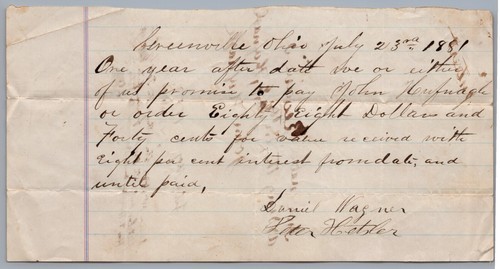 Greenville Ohio July 23rd 1881
One year after date we or either
of us promise to pay John Hufnagle
or order Eighty Eight Dollars and
Forty cents for value received with
Eight per cent interest from date, and
until paid,
Daniel Wagner
Peter Hetzler